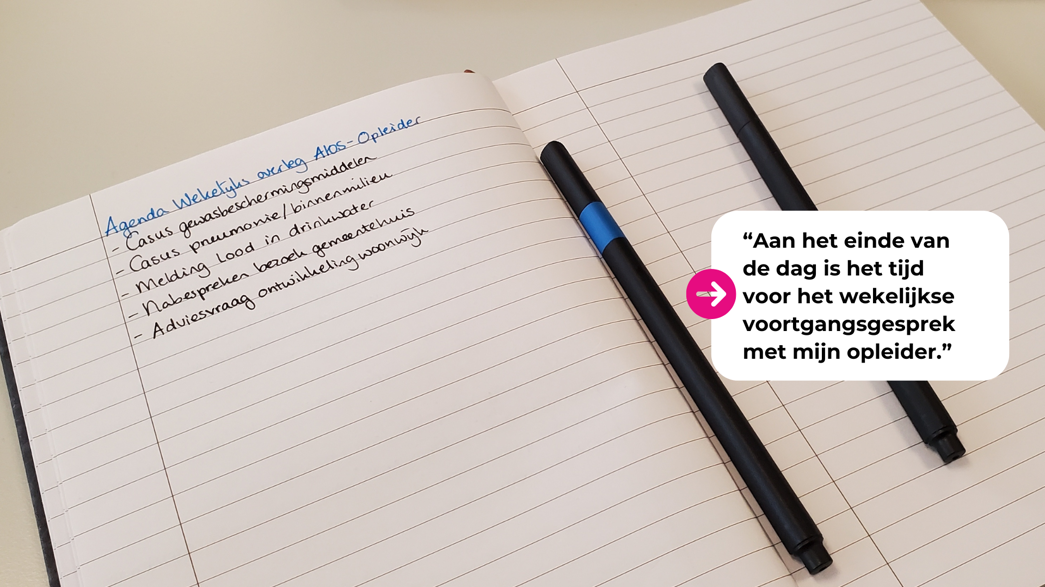 Agenda Wekelijks overleg AIOS-Opleider
- Casus gewasbeschermingsmiddelen
- Casus pneumonie/binnenmilieu
- Melding lood in drinkwater
- Nabespreken bezoek gemeentehuis
- Adviesvraag ontwikkeling woonwijk
“Aan het einde van
de dag is het tijd
voor het wekelijkse
voortgangsgesprek
met mijn opleider.”